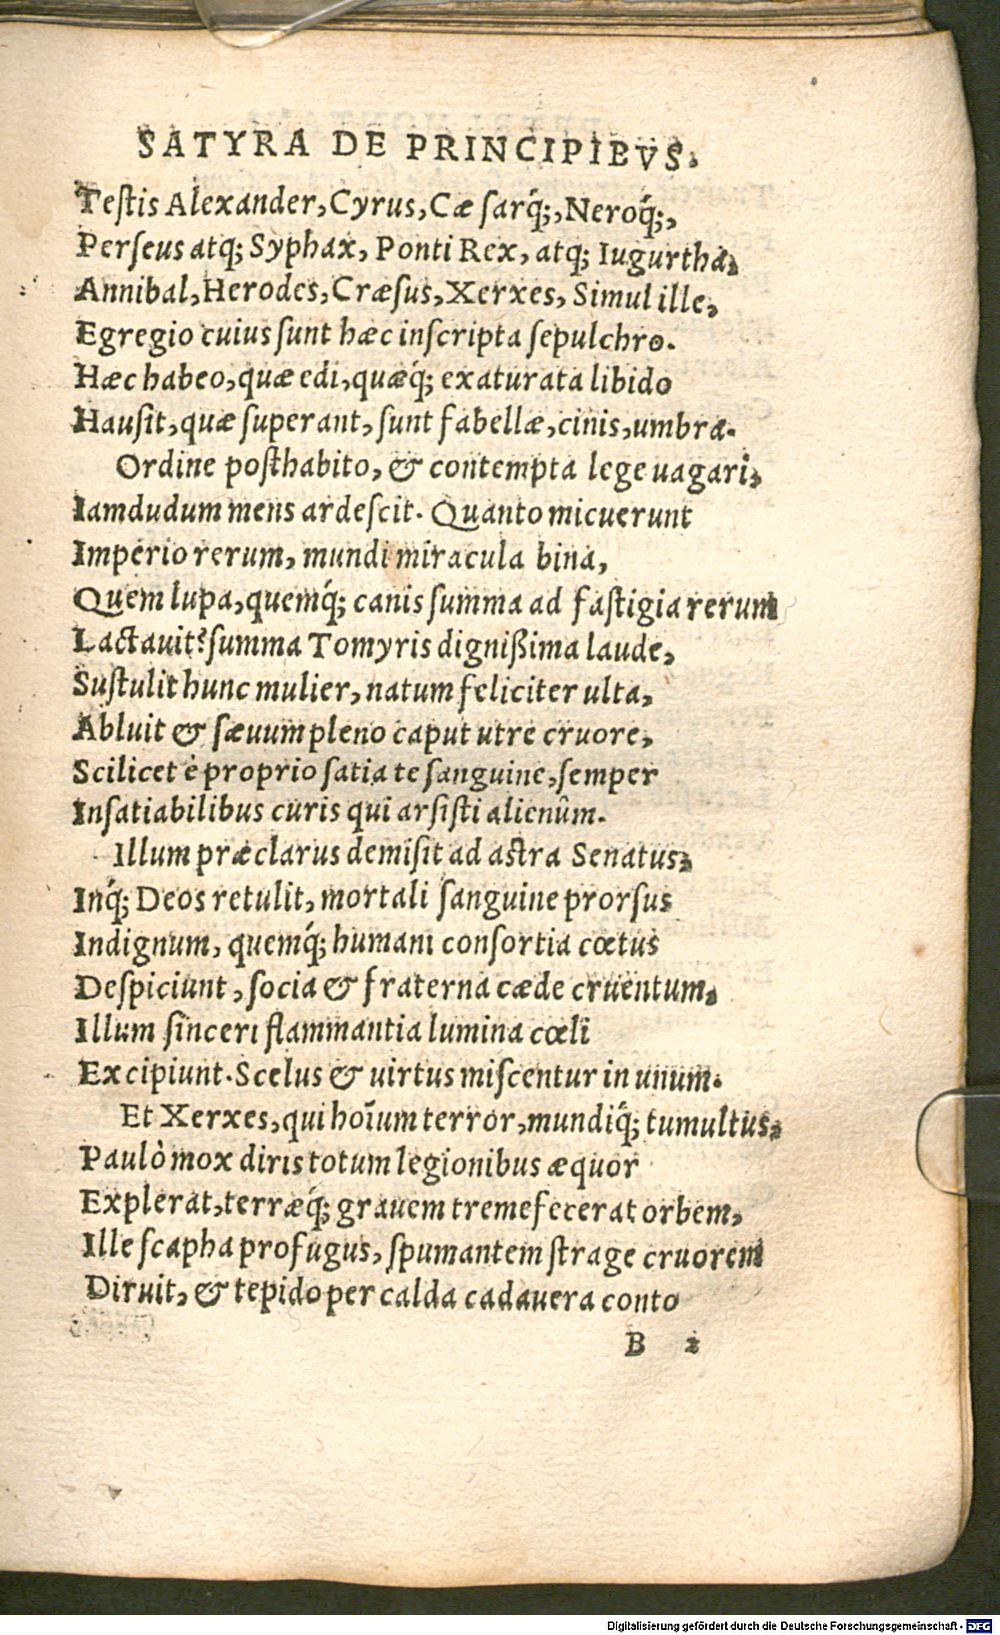 SATYRA DE PRINCIPIBVS.
Teſtis Alexander, Cyrus, Cæſarq́;, Neroq́;,
Perſeus atq; Syphax, Ponti Rex, atq; Iugurtha,
Annibal, Herodes, Cræſus, Xerxes, Simul ille,
Egregio cuius ſunt hæc inſcripta ſepulchro.
Hæc habeo, quæ edi, quæq́; exaturata libido
Hauſit, quæ ſuperant, ſunt fabellæ, cinis, umbra.
Ordine poſthabito, & contempta lege uagari,
Iamdudum mens ardeſcit. Quanto micuerunt
Imperio rerum, mundi miracula bina,
Quem lupa, quemq́; canis ſumma ad faſtigia rerum
Lactauit? ſumma Tomyris dignißima laude,
Suſtulit hunc mulier, natum feliciter ulta,
Abluit & ſæuum pleno caput utre cruore,
Scilicet è proprio ſatia te ſanguine, ſemper
Inſatiabilibus curis qui arſiſti alienûm.
Illum præclarus demiſit ad aſtra Senatus,
Inq́; Deos retulit, mortali ſanguine prorſus
Indignum, quemq́; humani conſortia cœtus
Deſpiciunt, ſocia & fraterna cæde cruentum,
Illum ſinceri flammantia lumina cœli
Excipiunt. Scelus & uirtus miſcentur in unum.
Et Xerxes, qui hoı̃um terror, mundiq́; tumultus,
Paulò mox diris totum legionibus æquor
Explerat, terræq́; grauem tremefecerat orbem,
Ille ſcapha profugus, ſpumantem ſtrage cruorem
Diruit, & tepido per calda cadauera conto
B 2
Digitalisierung gefördert durch die Deutsche Forschungsgemeinschaft - DFG